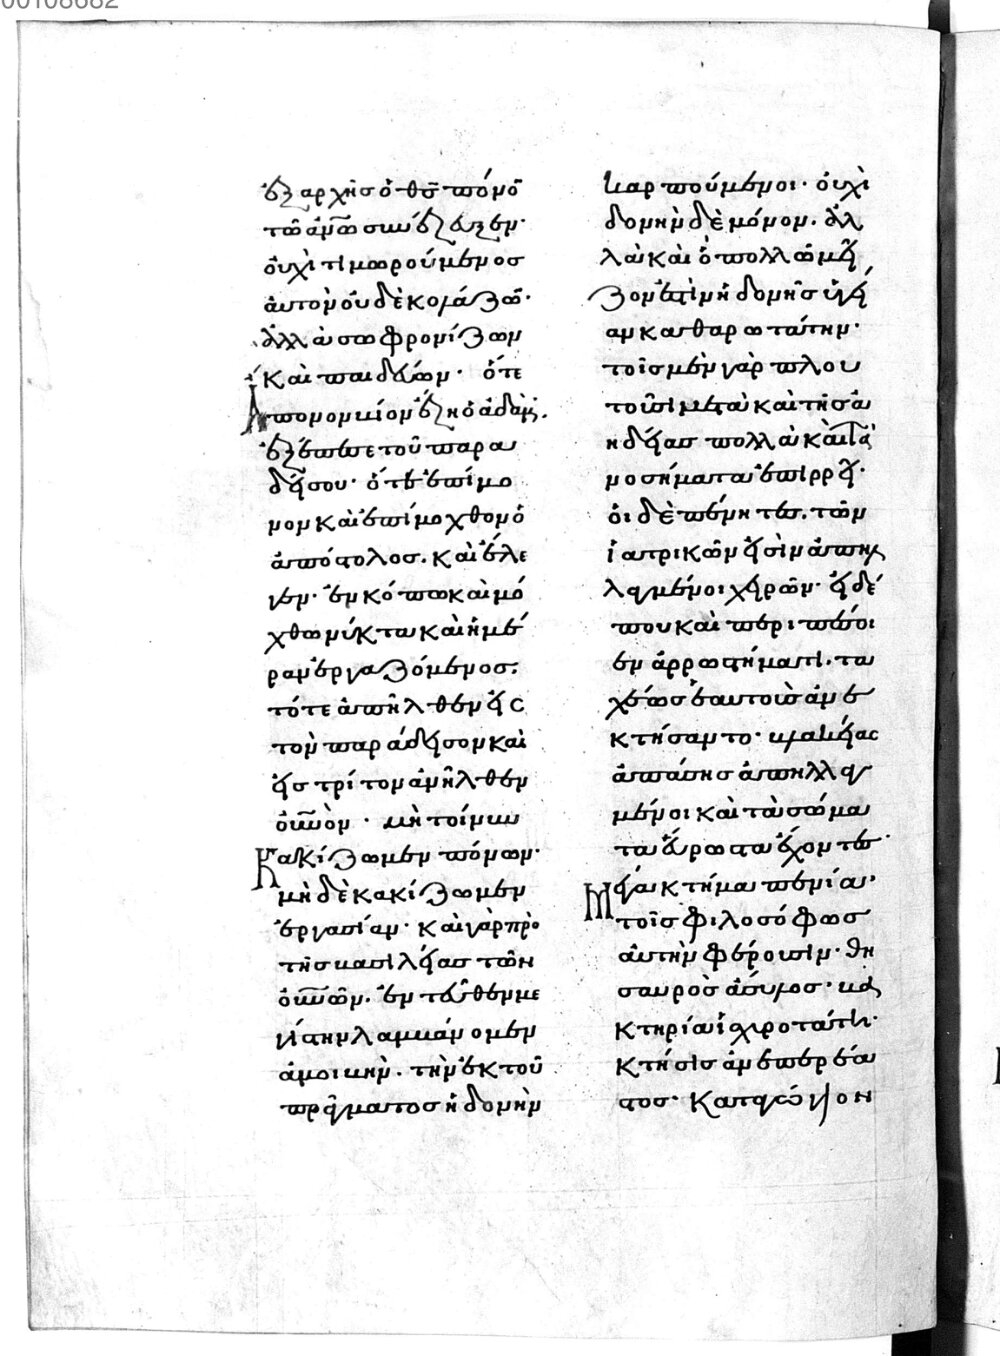 00108682
ἐξ ἀρχῆς ὁ θς πόνο
τῶ ἀνῶ συνέζευξεν·
οὐχὶ τιμωρούμενος
αὐτὸν οὐδὲ κολάζω·
ἀλλὰ σωφρονίζων
καὶ παιδεύων· ὅτε
ἄπονον βίον ἔζη ὁ ἀδὰμ.
ἐξέπεσε τοῦ παρα
δείσου· ὅτε ἐπίπο
νον καὶ ἐπίμοχθον ὁ
ἀπόστολος. καὶ ἔλε
γεν· ἐν κόπω καὶ μό
χθω νύκτα καὶ ἡμέ
ραν ἐργαζόμενος·
τότε ἀπῆλθεν εἰς
τὸν παράδεισον καὶ
εἰς τρίτον ἀνῆλθεν
οὐνόν · μὴ τοίνυν
κακίζωμεν πόνων·
μὴ δὲ κακίζωμεν
ἐργασίαν· καὶ γὰρ πρὸ
τῆς βασιλείας τῶν
οὐνῶν. ἐντεῦθεν με
γίστην λαμβάνομεν
ἀμοιβὴν. τὴν ἐκ τοῦ
πράγματος ἡδονὴν
καρπούμενοι· οὐχὶ
δονὴν δὲ μόνον. ἀλ
λὰ καὶ ὃ πολλῶ μεῖ
ζον ἐστὶν ἡδονῆς ὑγεί
αν καθαρωτάτην·
τοῖς μὲν γὰρ πλου
τοῦσι μετὰ καὶ τῆς ἀ
ηδείας πολλὰ καὶ τὰ
νοσήματα ἐπιρρεῖ·
οἱ δὲ πένητες. τῶν
ἰατρικῶν εἰσὶν ἀπηλ
λαγμένοι χειρῶν· εἰ δέ
που καὶ περιπέσοι
εν ἀρρωστήματι. τα
χέως ἑαυτοὺς ἀνε
κτήσαντο· βλακείας
ἁπάσης ἀπηλλαγ
μένοι καὶ τὰ σώμα
τα εὔρωστα ἔχοντες·
μέγα κτῆμα πενία·
τοῖς φιλοσόφως
αὐτὴν φέρουσιν· θη
σαυρὸς ἄσυλος· βα
κτηρία ἰσχυροτάτη·
κτῆσις ἀνεπερέα
στος· καταγώγιον